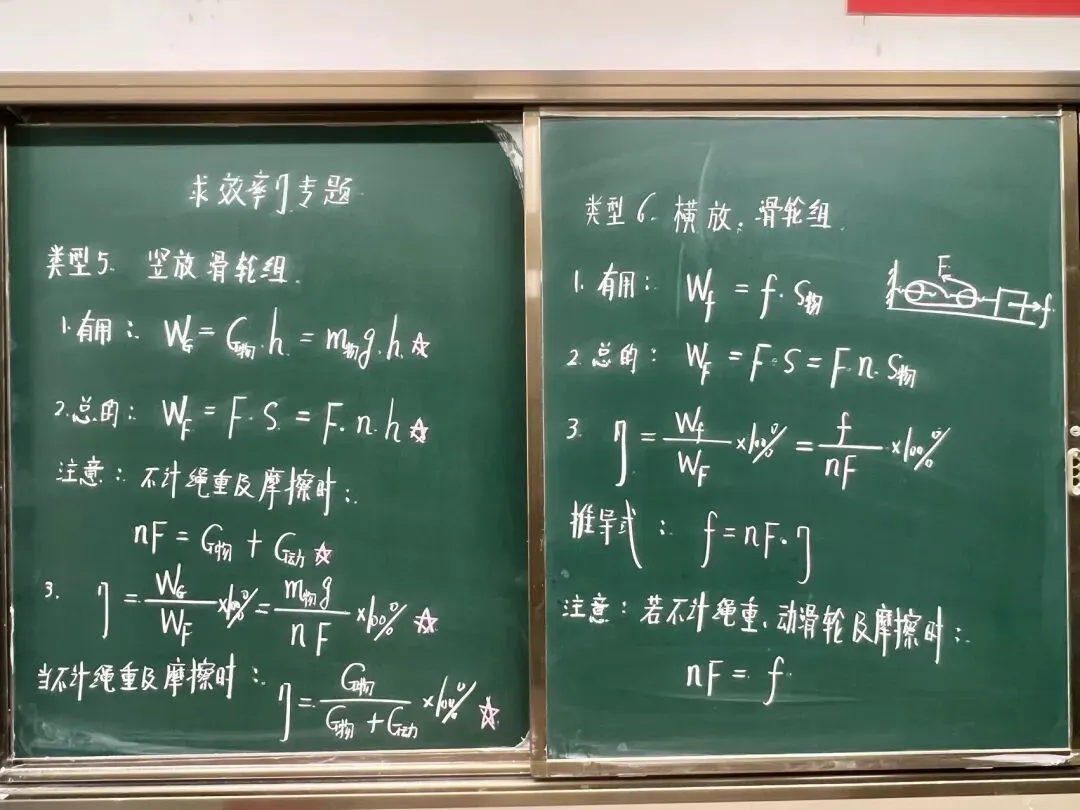 求效率η专题
类型5. 竖放滑轮组.
1.有用: W_G = G物·h = m物g·h ☆
2.总的: W_F = F·S = F·n·h ☆
注意: 不计绳重及摩擦时:
nF = G物 + G动 ☆
3. η = W_G/W_F ×100% = m物g/nF ×100% ☆
当不计绳重及摩擦时: η = G物/(G物+G动) ×100% ☆
类型6. 横放. 滑轮组.
1.有用: W_f = f·S物
F
f
2.总的: W_F = F·S = F·n·S物
3. η = W_f/W_F ×100% = f/nF ×100%
推导式: f = nF·η
注意: 若不计绳重、动滑轮及摩擦时:
nF = f